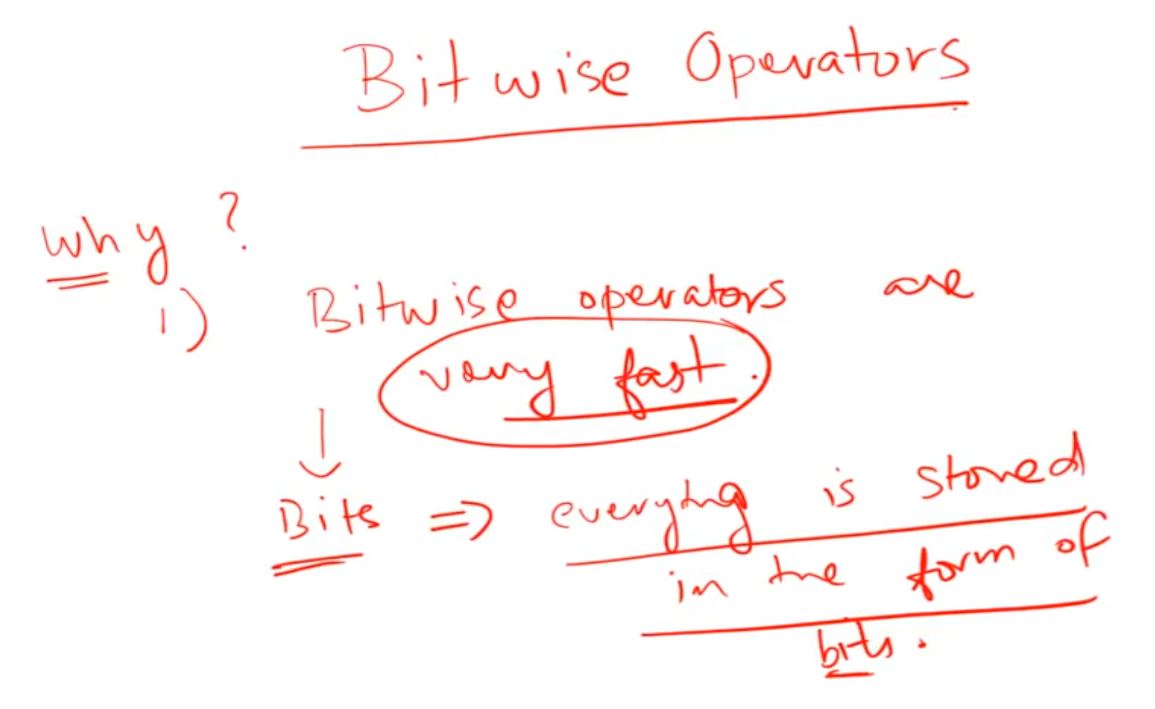 Bitwise Operators
why ?
1) Bitwise operators are
very fast.
↓
Bits => everything is stored
in the form of
bits.